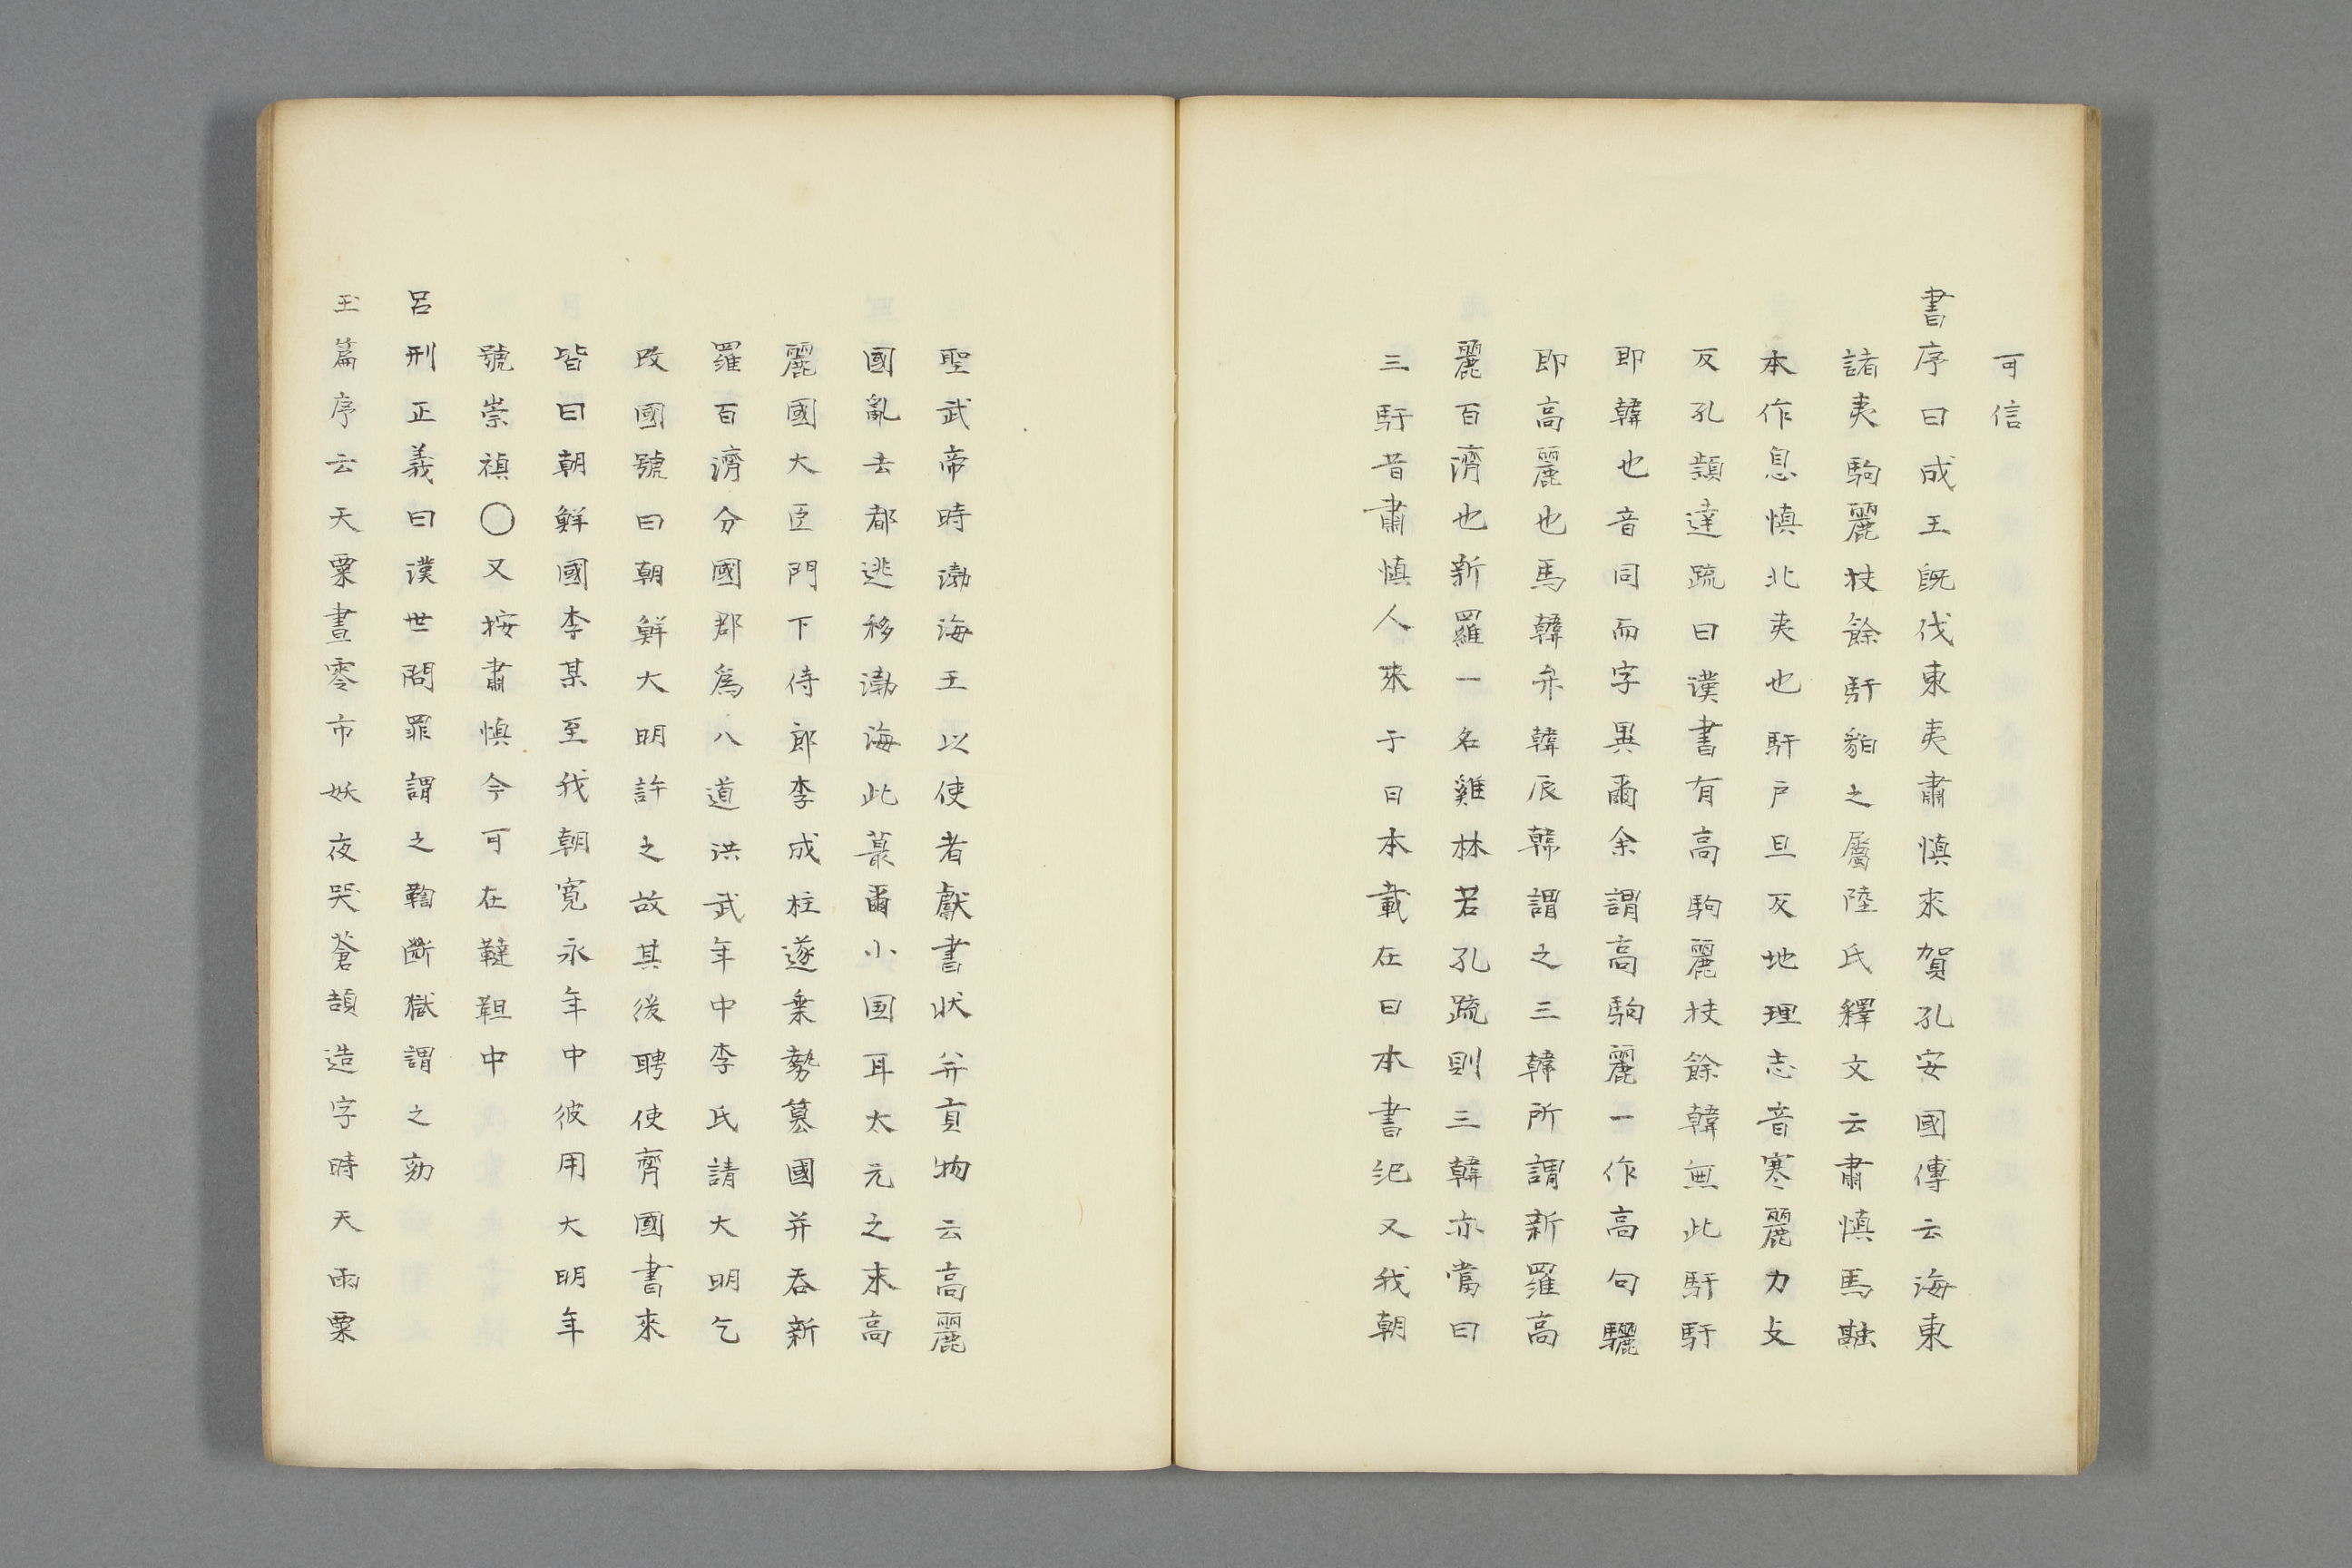 可信
書序曰成王既伐東夷肅慎來賀孔安國傳云海東
諸夷駒麗扶餘馯貊之屬陸氏釋文云肅慎馬融
本作息慎北夷也馯戸旦反地理志音寒麗力支
反孔頴達疏曰漢書有高駒麗扶餘韓無此馯馯
即韓也音同而字異爾余謂高駒麗一作高句驪
即高麗也馬韓弁韓辰韓謂之三韓所謂新羅高
麗百濟也新羅一名雞林若孔疏則三韓亦當曰
三馯昔肅慎人來于日本載在日本書紀又我朝
聖武帝時渤海王以使者獻書状并貢物云高麗
國亂去都逃移渤海此蕞爾小国耳大元之末高
麗國大臣門下侍郎李成桂遂乗勢簒國并吞新
羅百濟分國郡為八道洪武年中李氏請大明乞
改國號曰朝鮮大明許之故其後聘使齎國書來
皆曰朝鮮國李某至我朝寛永年中彼用大明年
號崇禎〇又按肅慎今可在韃靼中
呂刑正義曰漢世問罪謂之鞫斷獄謂之劾
玉篇序云天粟晝零市妖夜哭蒼頡造字時天雨粟